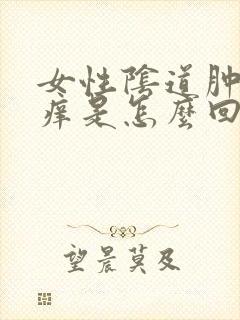 女性陰道肿
痒是怎麼回
望晨莫及